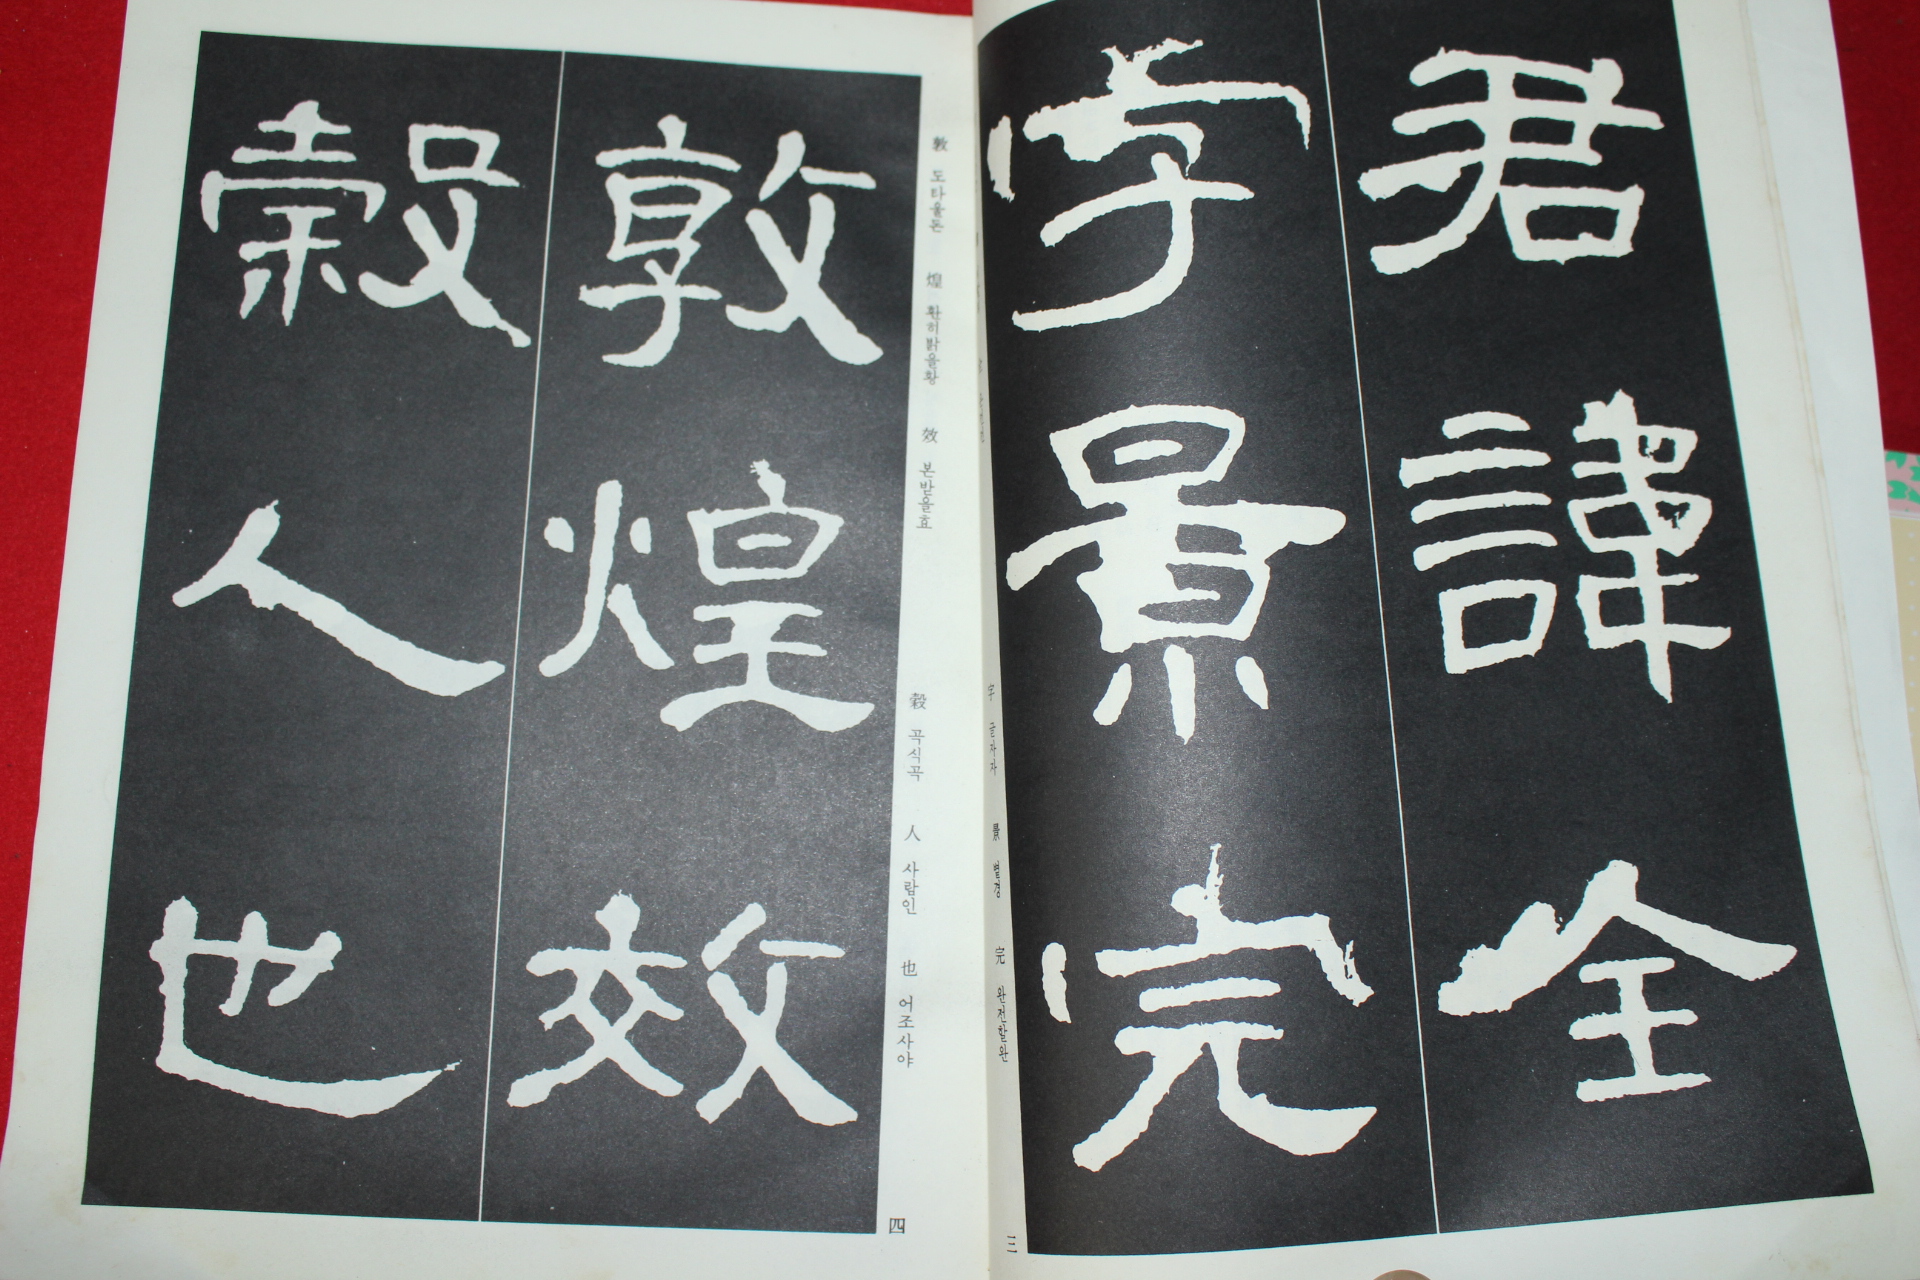 君諱全
字景完
字 글자자 景 볕경 完 완전할완
三
敦煌效
穀人也
敦 도타울돈 煌 환히밝을황 效 본받을효
穀 곡식곡 人 사람인 也 어조사야
四